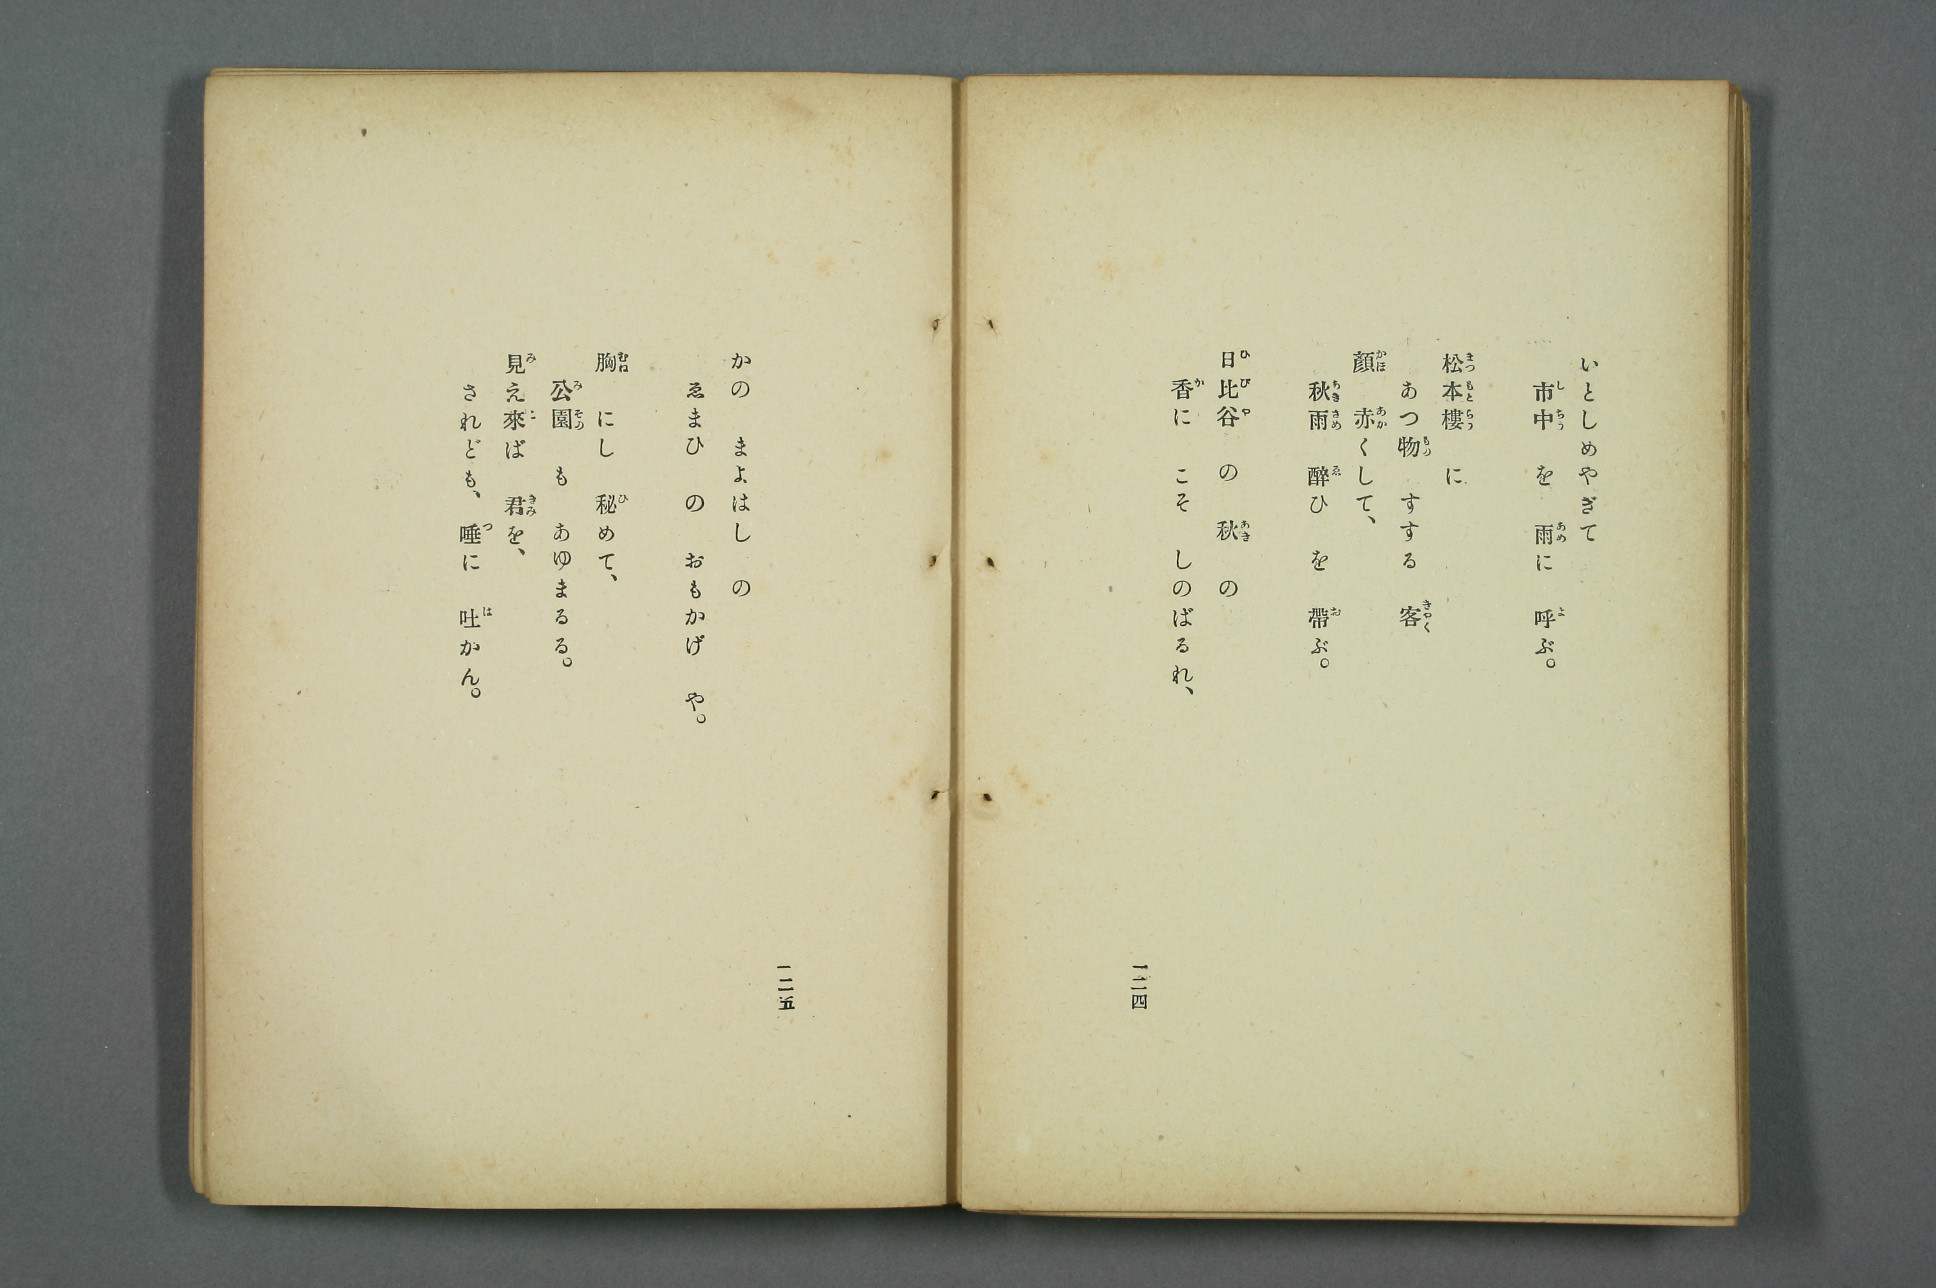 いとしめやぎて
市中 を 雨に 呼ぶ。
松本樓 に
あつ物 すする 客
顏 赤くして、
秋雨 醉ひ を 帶ぶ。
日比谷 の 秋 の
香に こそ しのばるれ、
一二四
かの まよはし の
ゑまひ の おもかげ や。
胸 にし 秘めて、
公園 も あゆまるる。
見え來ば 君を、
されども、唾に 吐かん。
一二五